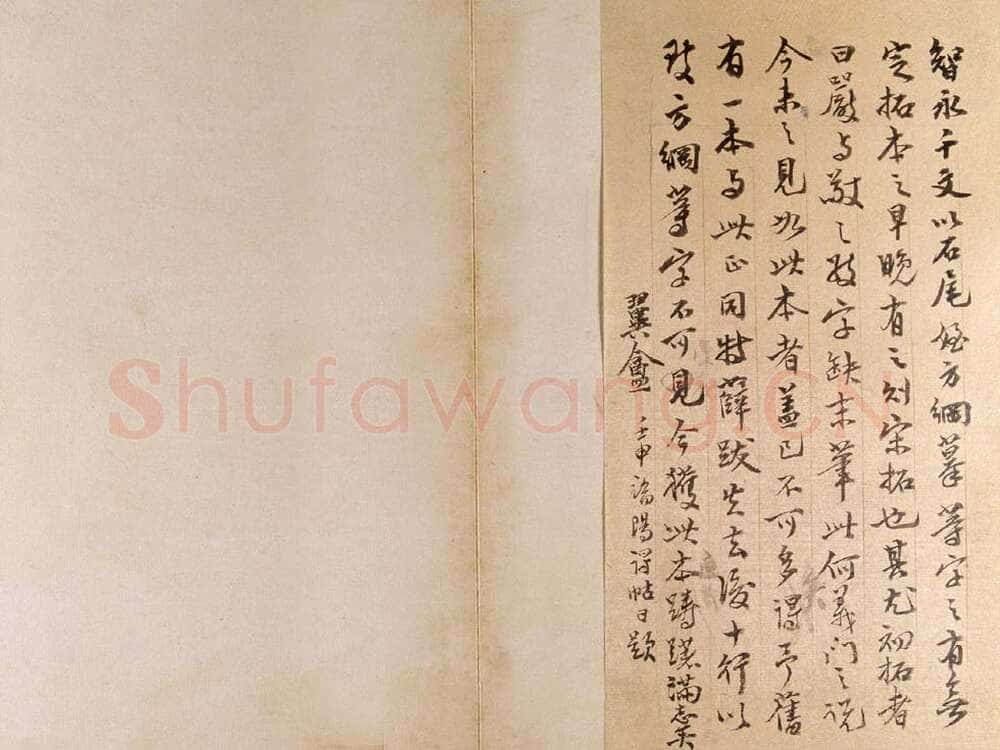 智永千文以石尾姪方綱摹等字之有無
定拓本之早晚有之則宋拓也其尤初拓者
曰嚴与敬之敬字缺末筆此何義門之說
今未之見如此本者蓋已不可多得予舊
有一本与此正同特薛跋失去後十行以
致方綱等字不可見今獲此本躊躇滿志矣
翼盦 壬申 陽得帖日題
Shufawang.CN